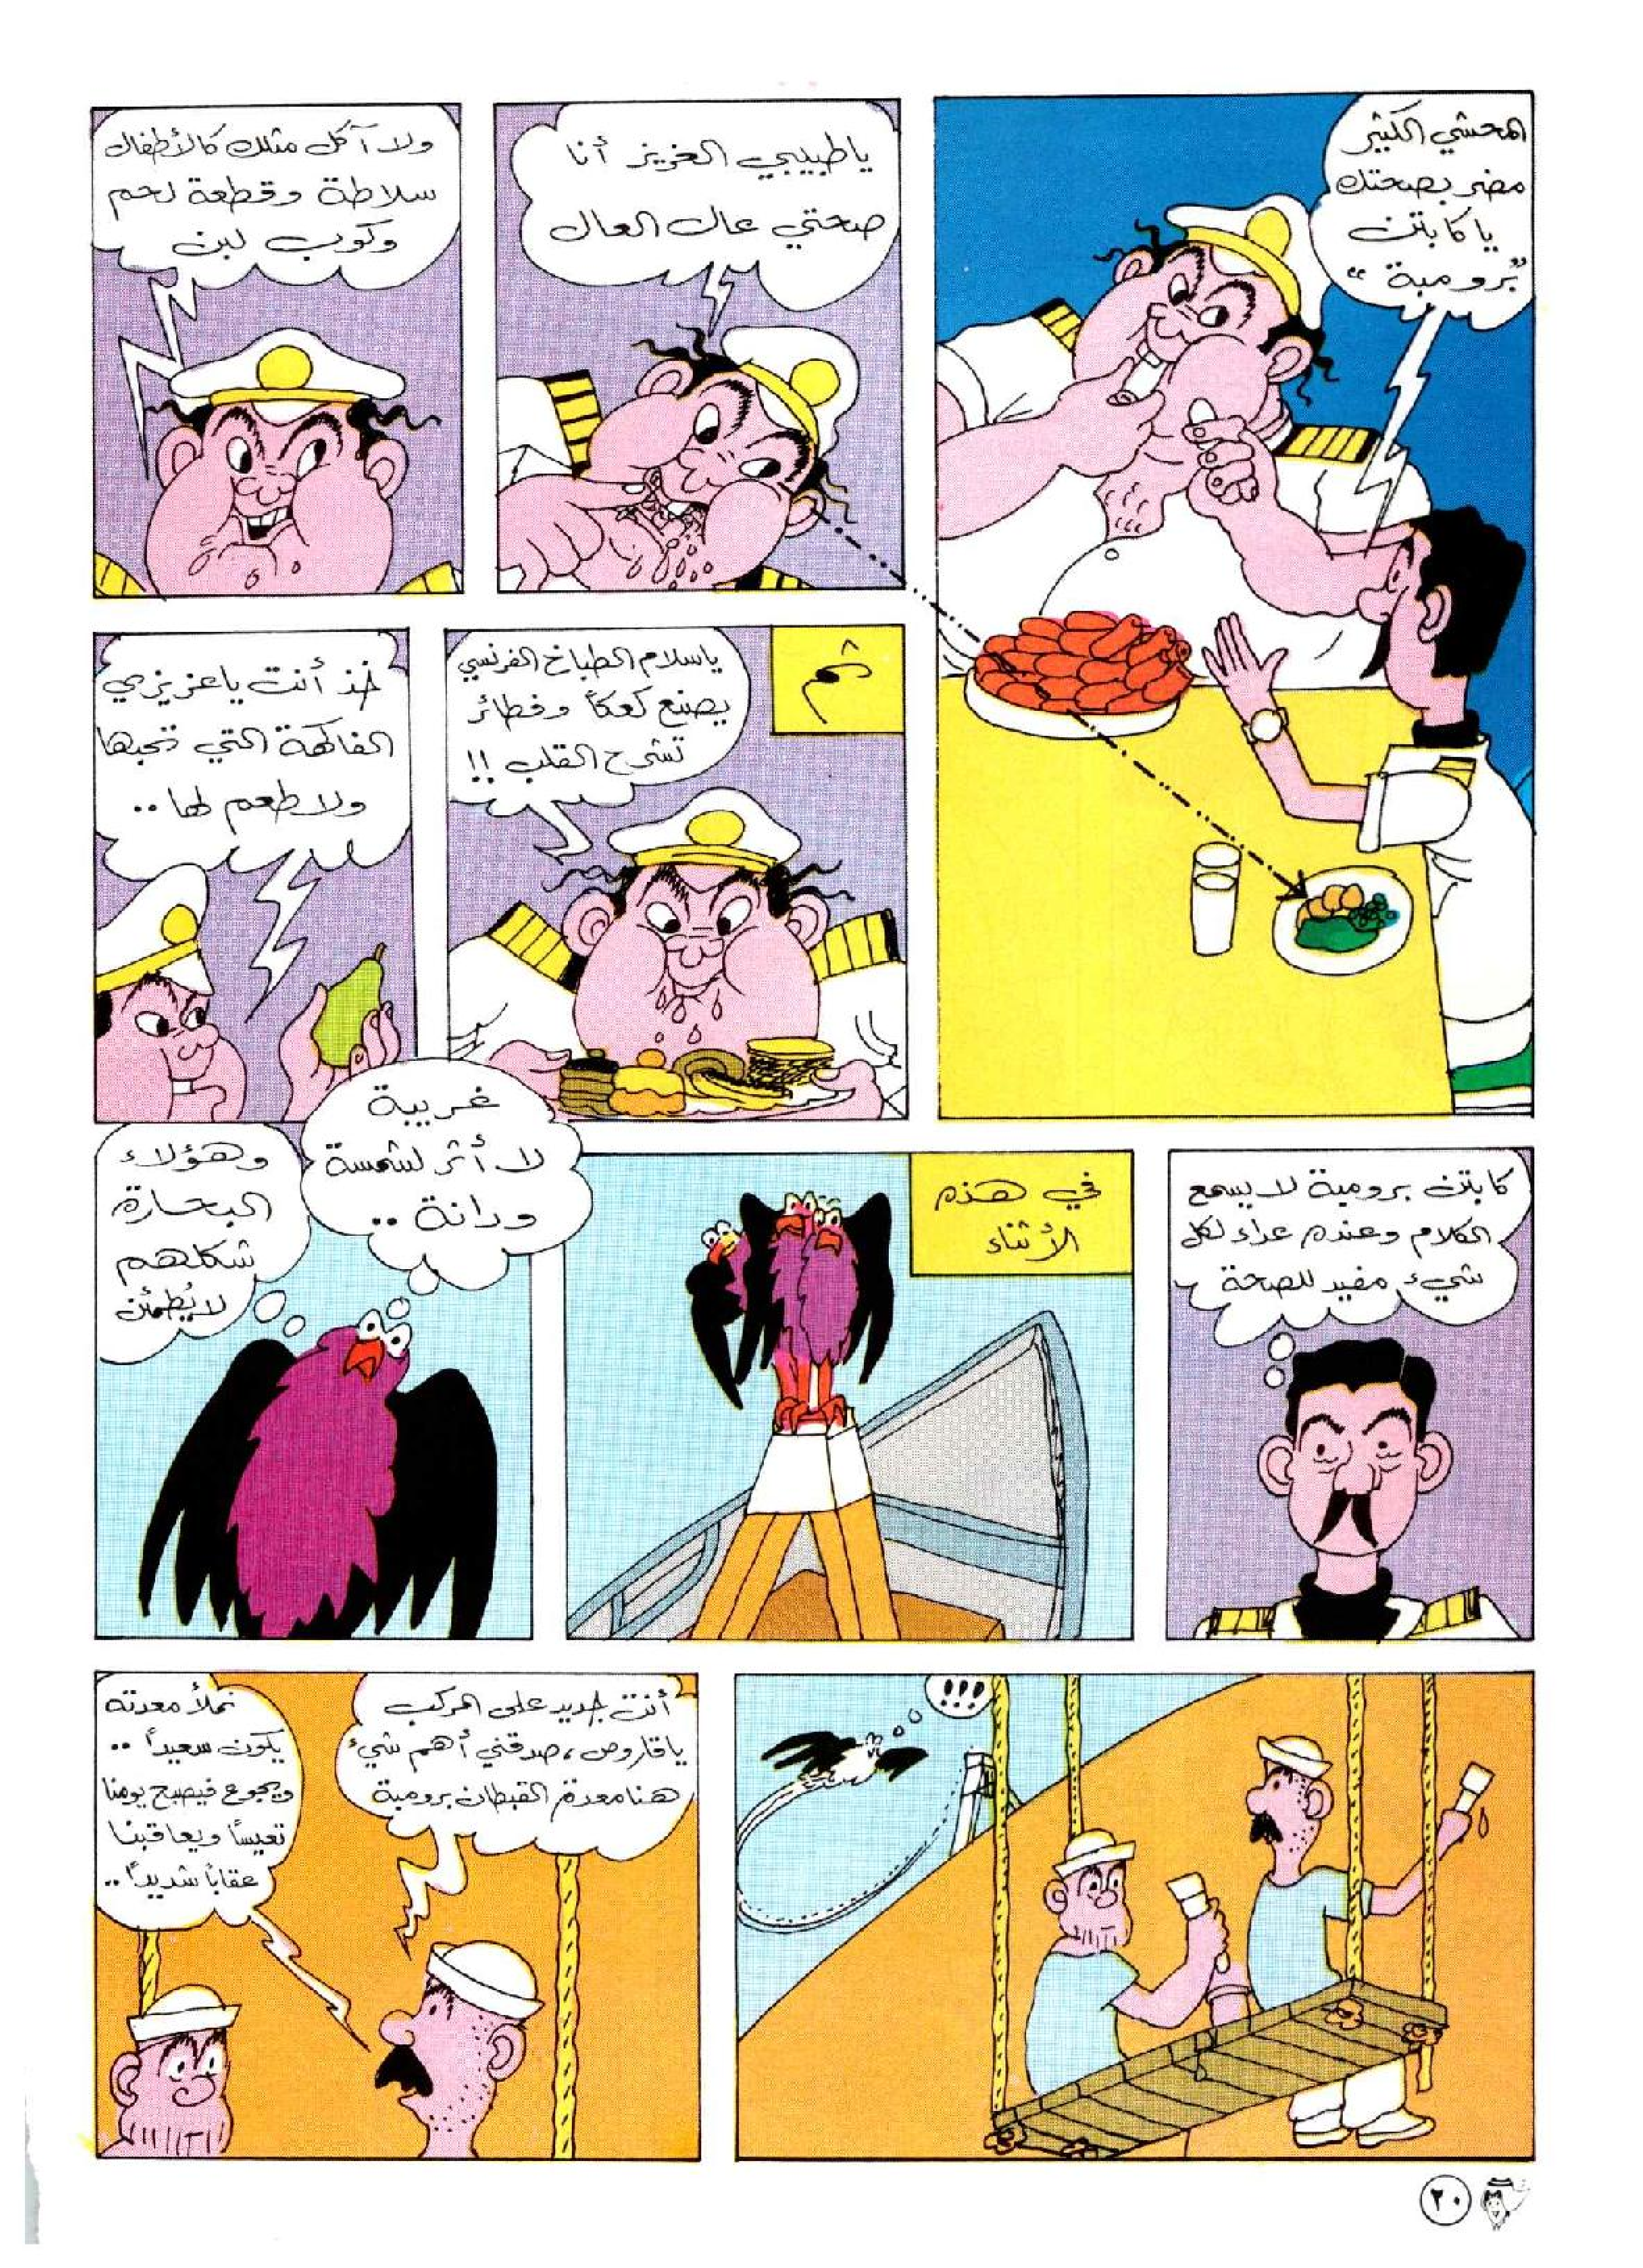 المحشي الكثير
مضر بصحتك
يا كابتن
"برومبة"
يا طبيبي العزيز أنا
صحتي عال العال
ولا آكل مثلك كالأطفال
سلاطة وقطعة لحم
وكوب لبن
ثم
ياسلام الطباخ الفرنسي
يصنع كعكاً وفطائر
تشرح القلب !!
خذ أنت يا عزيزي
الفاكهة التي تحبها
ولا طعم لها ..
كابتن برومبة لا يسمع
الكلام وعنده عداء لكل
شيء مفيد للصحة
في هذه
الأثناء
غريبة
لا أثر لشمسة
ودانة ..
وهؤلاء
البحارة
شكلهم
لا يُطمئن
!!!
أنت جديد على المركب
يا قاروص، صدقني أهم شيء
هنا معدة القبطان برومبة
نملأ معدته
يكون سعيداً ..
ويجوع فيصبح يومنا
تعيساً ويعاقبنا
عقاباً شديداً ..
٢٠